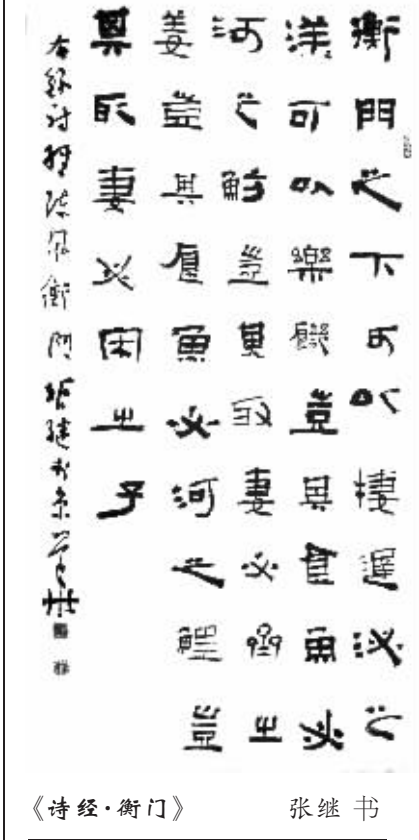 衡門之下可以棲遲泌之
洋可以樂饑豈其食魚必
河之魴豈其取妻必齊之
姜豈其食魚必河之鯉豈
其取妻必宋之子
右録詩經陳風衡門 張繼書京
《诗经·衡门》 张继 书